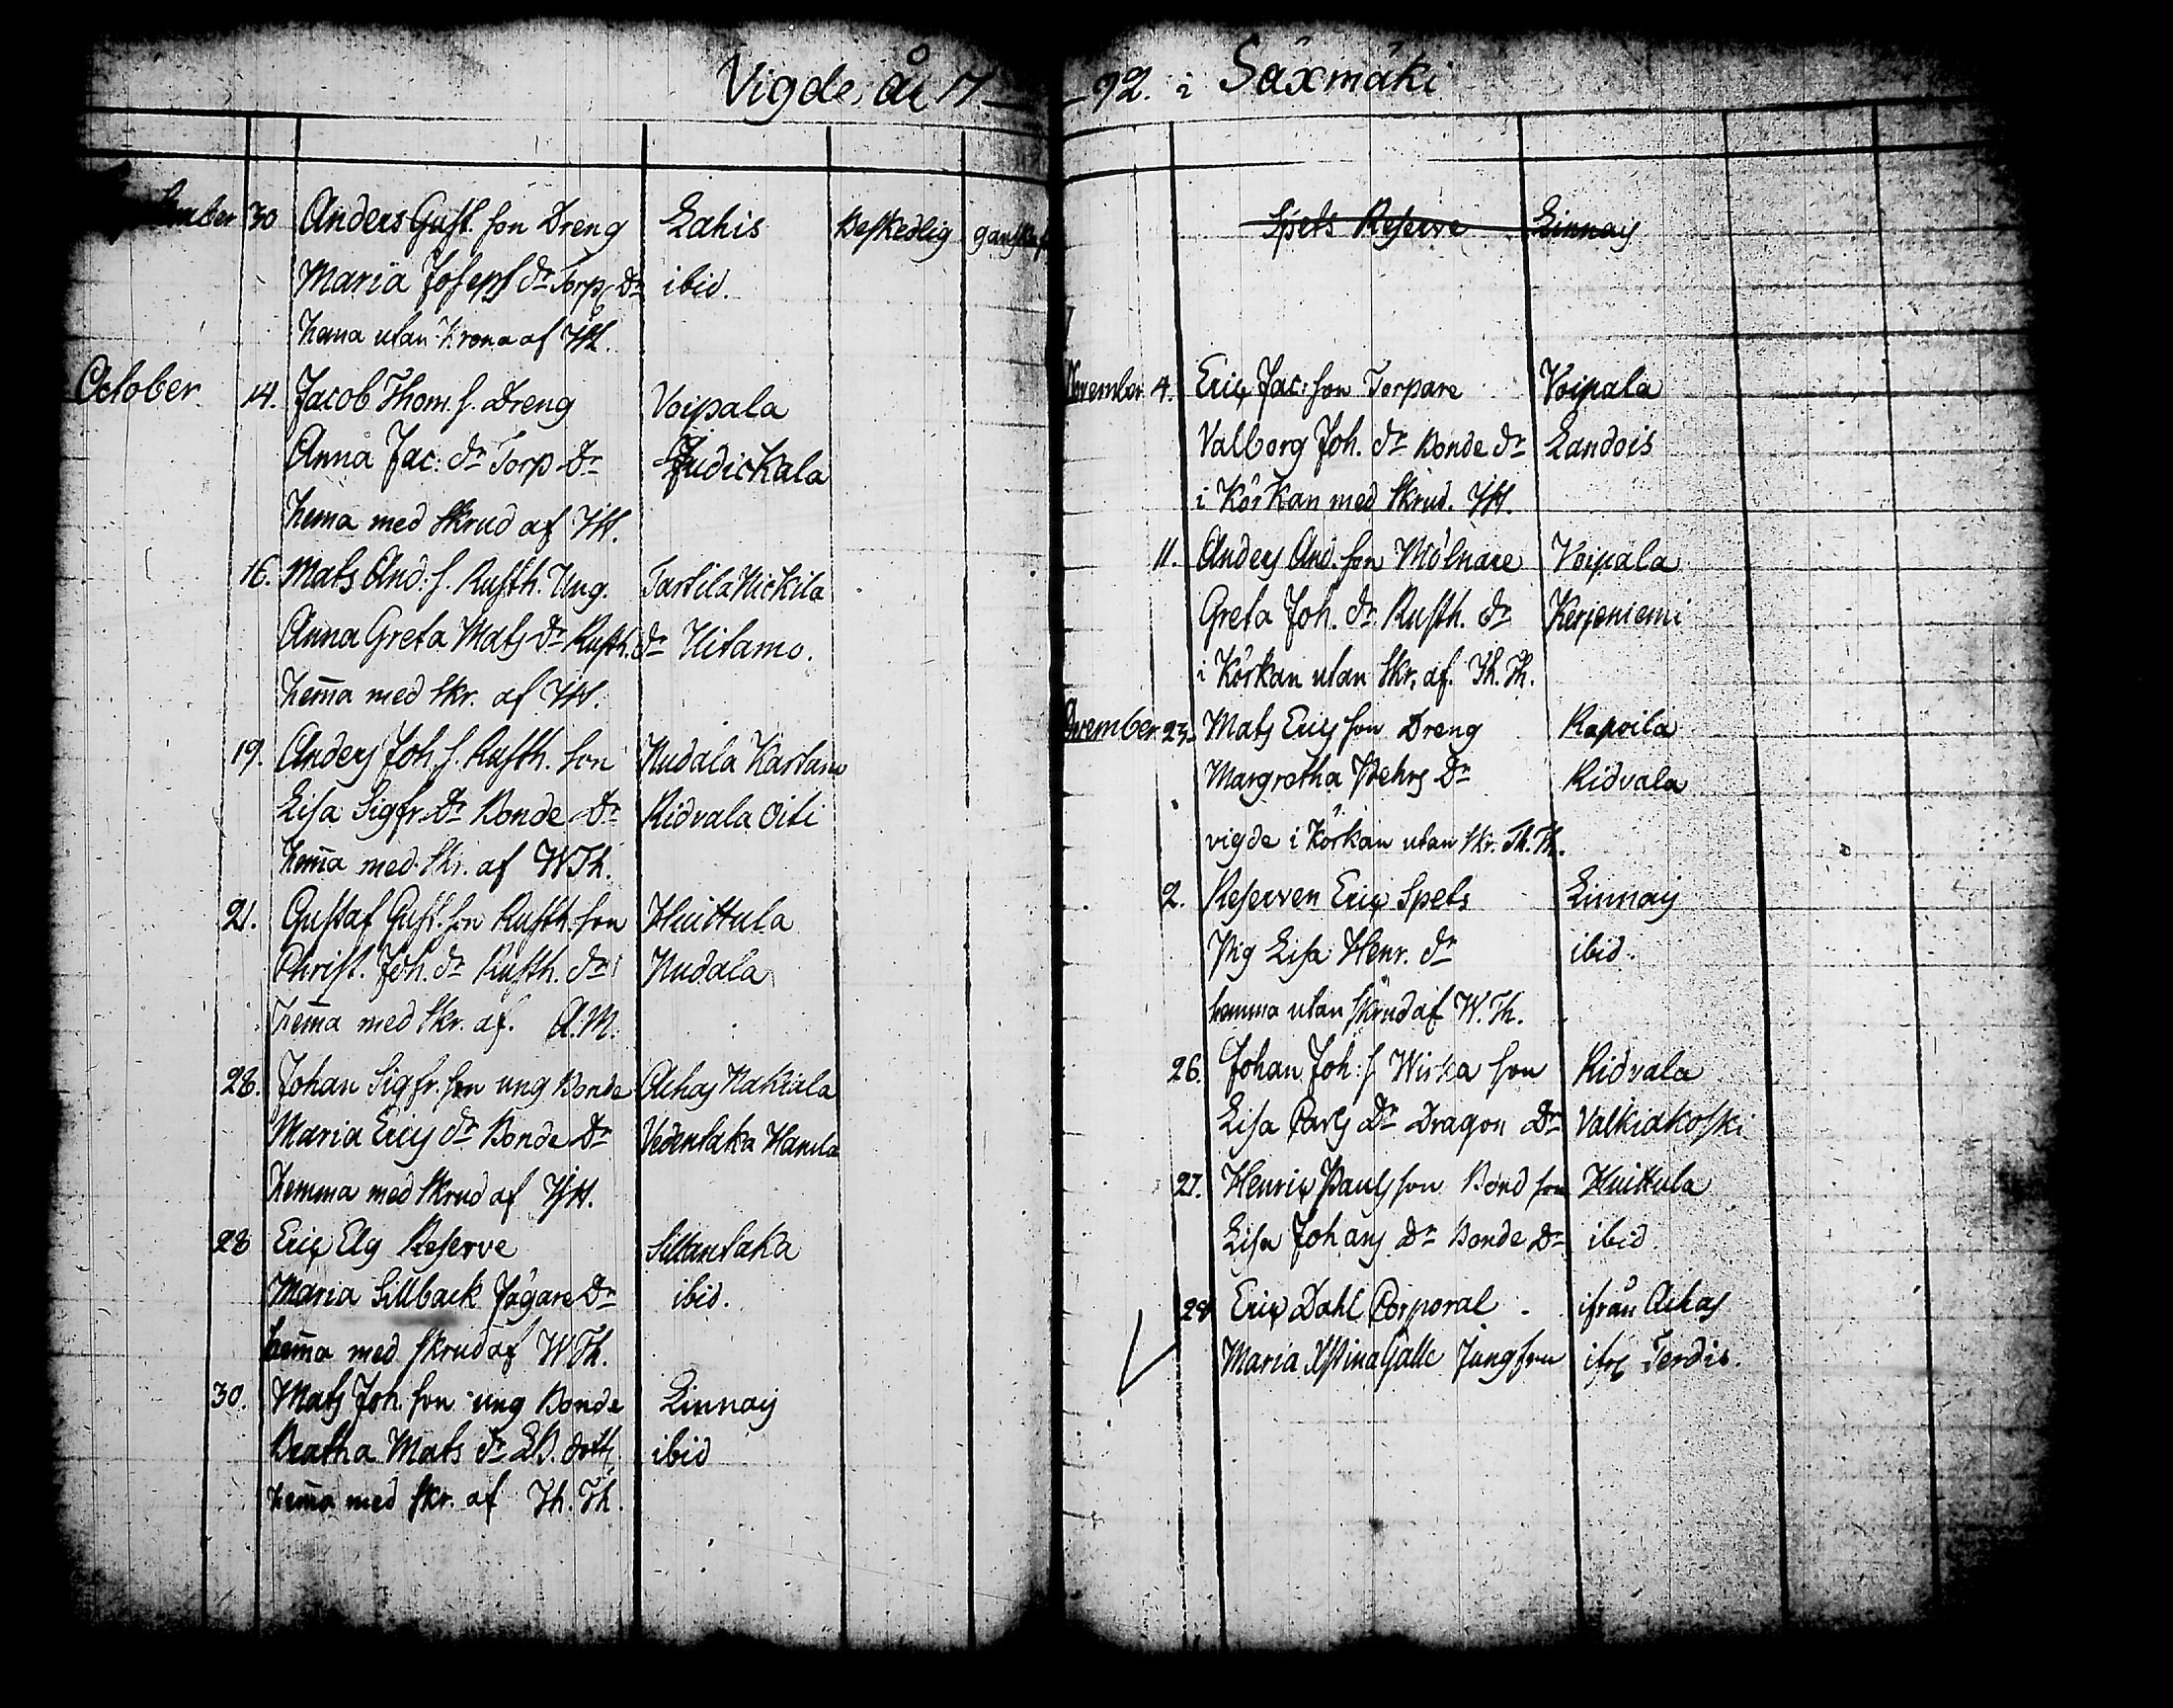 Vigde år 17 — 92. i Säxmäki
30 Anders Gust. son Dreng Lahis Beskedlig
Maria Joseps dr Torp dr ibid.
hema utan Krona af
October 14. Jacob Thom. s. Dreng Voipala
Anna Jac: dr Torp dr Judickala
hema med skrud af
16. Mats And: s. Rusth. Ung. Tarttila Nickila
Anna Greta Mats dr Rusth. dr Uitamo.
hem̄a med skr. af
19. Anders Joh. s. Rusth. son Nudala Kartano
Lisa Sigfr. Dr Bonde Dr Ridvala Oiti
hem̄a med Skr. af WTh.
21. Gustaf Gust. son Rusth. son Huittula
Christ. Joh. dr Rusth. dr Nudala
hem̄a med skr. af. A.M.
28. Johan Sigfr. son ung Bonde Achas Nakiala
Maria Erics dr Bonde Dr Vedentaka Hamla
hemma med skrud af
28 Eric Elg Reserve Sillantaka
Maria Sillback Jägare Dr ibid.
hem̄a med skrud af WTh.
30. Mats Joh. son ung Bonde Linnais
Beatha Mats dr ibid
hem̄a med skr. af Th. Th.
Spets Reserve Linnais
November 4. Eric Jac: son Torpare Voipala
Valborg Joh. dr Bonde dr Landois
i Körkan med skrud.
11. Anders And. son Mölnare Voipala
Greta Joh. dr Rusth. dr Kerjeniemi
i Körkan utan Skr. af. Th. Th.
23. Mats Erics son Dreng Rapoila
Margretha Pehrs Dr Ridvala
vigde i Körkan utan skr. Th. Th.
2. Reserven Eric Spets Linnais
Pig Lisa Henr. dr ibid.
hemma utan skrud af W. Th.
26. Johan Joh: s Wirka son Ridvala
Lisa Carls Dr Dragon Dr Valkiakoski
27. Henric Pauls son Bond son Huittula
Lisa Johans Dr Bonde Dr ibid.
28 Eric Dahl Corporal ifrån Achas
Maria Xstina Galle Jungfru ifr.